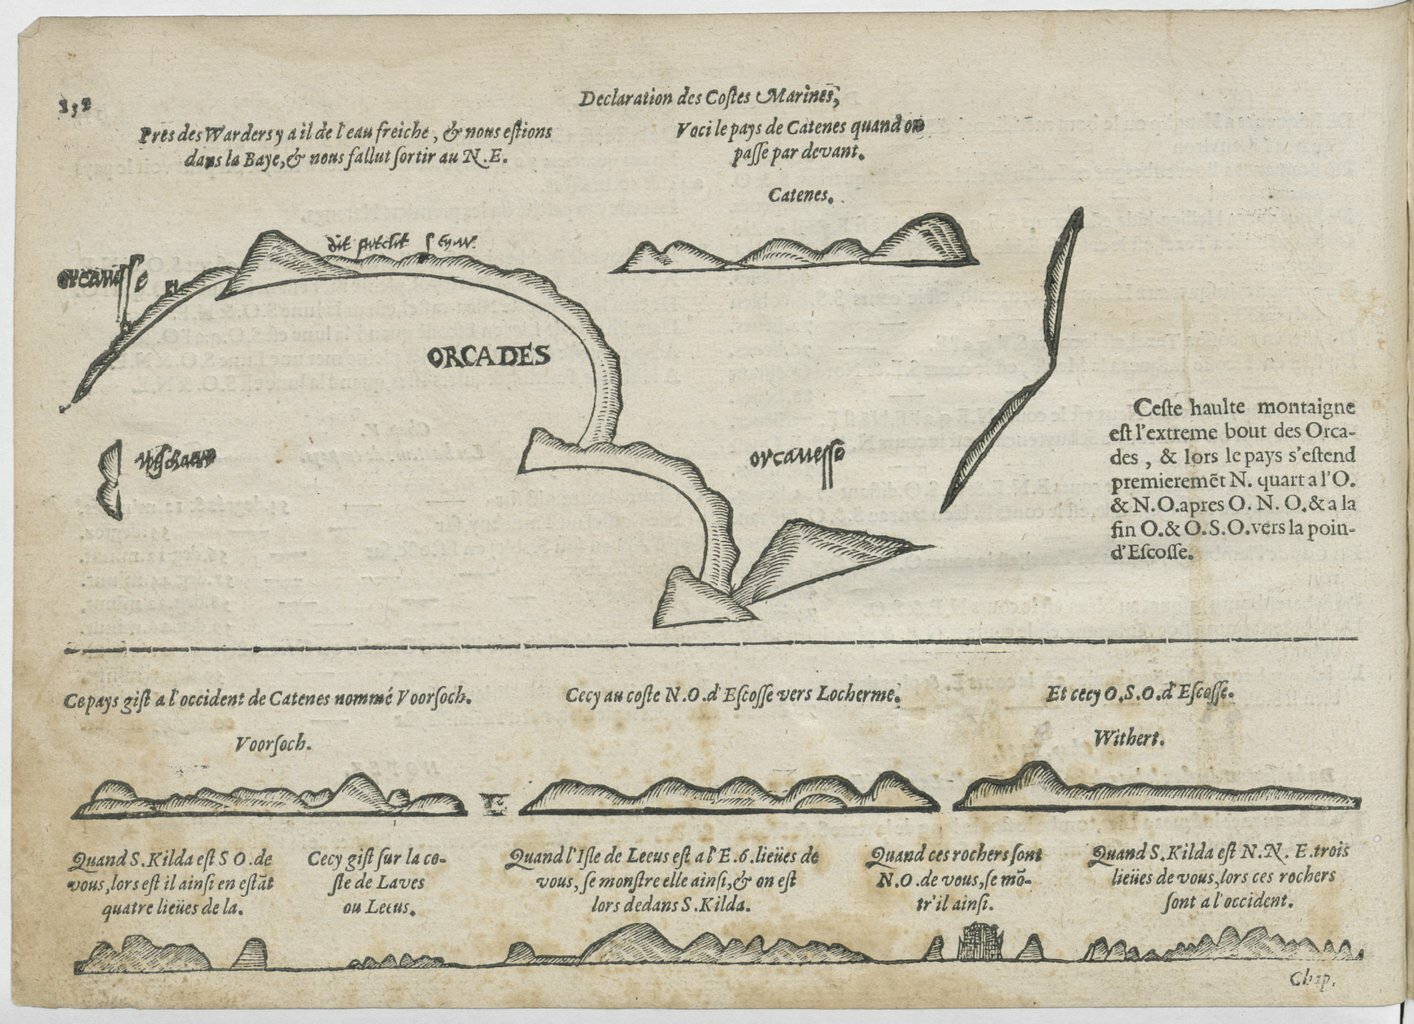 132
Declaration des Costes Marines,
Pres des Warders y a il de l'eau freiche, & nous estions
dans la Baye, & nous fallut sortir au N.E.
Voci le pays de Catenes quand on
passe par devant.
Catenes.
ORCADES
orcauesse
Ceste haulte montaigne
est l'extreme bout des Orca-
des, & lors le pays s'estend
premieremēt N. quart a l'O.
& N.O. apres O. N. O. & a la
fin O. & O.S.O. vers la poin-
d'Escosse.
Ce pays gist a l'occident de Catenes nommé Voorsoch.
Voorsoch.
Cecy au coste N.O. d'Escosse vers Locherme.
Et cecy O.S.O. d'Escosse.
Withert.
Quand S. Kilda est S O. de
vous, lors est il ainsi en estāt
quatre lieües de la.
Cecy gist sur la co-
ste de Laves
ou Leeus.
Quand l'Isle de Leeus est a l'E. 6. lieües de
vous, se monstre elle ainsi, & on est
lors dedans S. Kilda.
Quand ces rochers sont
N.O. de vous, se mō-
tr'il ainsi.
Quand S. Kilda est N.N. E. trois
lieües de vous, lors ces rochers
sont a l'occident.
Chap.